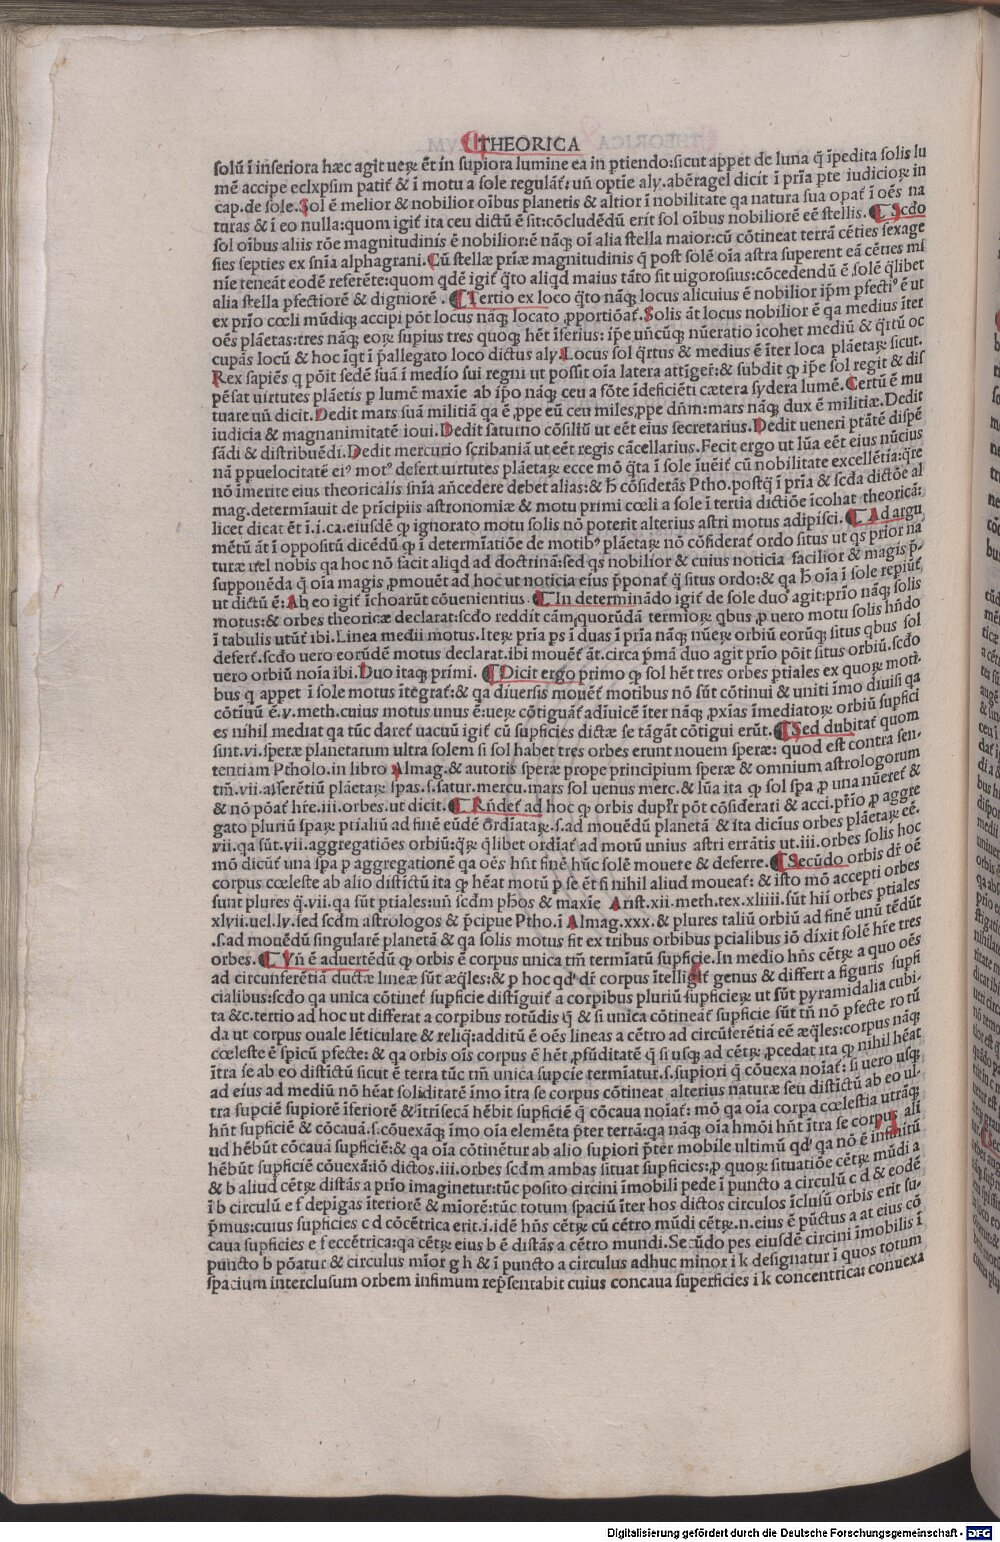 THEORICA
solū ī inferiora hæc agit ueꝝ ēt in supiora lumine ea in ptiendo: sicut appet de luna q̄ īpedita solis lu
mē accipe eclxpsim patiť & ī motu a sole regulāť: uñ optie aly. abēragel dicit ī pīa pte iudicioꝝ in
cap. de sole. Sol ē melior & nobilior oībus planetis & altior ī nobilitate qa natura sua opať ī oēs na
turas & ī eo nulla: quom igiť ita ceu dictū ē sit: cōcludēdū erit sol oībus nobiliorē eē stellis. ¶ Scdo
sol oībus aliis rōe magnitudinis ē nobilior: ē nāqȝ oī alia stella maior: cū cōtineat terrā cēties sexage
sies septies ex snīa alphagrani. Cū stellæ prīæ magnitudinis q̄ post solē oīa astra superent eā cēties mī
nīe teneāt eodē referēte: quom qdē igiť q̄to aliqd maius tāto sit uigorosius: cōcedendū ē solē q̄libet
alia stella pfectiorē & digniorē. ¶ Tertio ex loco q̄to nāqȝ locus alicuius ē nobilior ip̄m pfectiꝰ ē ut
ex prīo cœli mūdiqȝ accipi pōt locus nāqȝ locato ꝓportiōať. Solis āt locus nobilior ē qa medius īter
oēs plāetas: tres nāqȝ eoꝝ supius tres quoqȝ hēt īferius: īpe uñcūqȝ nūeratio īcohet mediū & q̄rtū oc
cupās locū & hoc īqt ī pallegato loco dictus aly. Locus sol q̄rtus & medius ē īter loca plāetaꝝ sicut.
Rex sapiēs q pōit sedē suā ī medio sui regni ut possit oīa latera attīger: & subdit qȝ ip̄e sol regit & dis
pēsat uirtutes plāetis p lumē maxīe ab īpo nāqȝ ceu a fōte īdeficiēti cætera sydera lumē. Certū ē mu
tuare uñ dicit. Dedit mars suā militiā qa ē ꝓpe eū ceu miles ꝓpe dñm: mars nāqȝ dux ē militiæ. Dedit
iudicia & magnanimitatē ioui. Dedit saturno cōsiliū ut eēt eius secretarius. Dedit ueneri ptātē dispē
sādi & distribuēdi. Dedit mercurio scribaniā ut eēt regis cācellarius. Fecit ergo ut lūa eēt eius nūcius
nā ppuelocitatē eiꝰ motꝰ defert uirtutes plāetaꝝ ecce mō q̄ta ī sole īuēiť cū nobilitate excellētia: q̄re
nō īmerite eius theoricalis snīa añcedere debet alias: & ħ cōsiderās Ptho. postq̄ ī pīa & scda dictōe al
mag. determīauit de prīcipiis astronomiæ & motu primi cœli a sole ī tertia dictiōe īcohat theoricā:
licet dicat ēt ī. i. ca. eiusdē qȝ ignorato motu solis nō poterit alterius astri motus adipisci. ¶ Ad argu
mētū āt ī oppositū dicēdū qȝ ī determīatiōe de motibꝰ plāetaꝝ nō cōsiderať ordo situs ut qs prior na
turæ uel nobis qa hoc nō facit aliqd ad doctrinā: sed qs nobilior & cuius noticia facilior & magis p̄
supponēda q̄ oīa magis ꝓmouēt ad hoc ut noticia eius p̄ponať q̄ situs ordo: & qa ħ oīa ī sole repiūť
ut dictū ē: Ab eo igiť īchoarūt cōuenientius. ¶ In determinādo igiť de sole duoꝰ agit: prīo nāqȝ solis
motus: & orbes theoricæ declarat: scdo reddit cām quorūdā termioꝝ qbus ꝓ uero motu solis hñdo
ī tabulis utūť ibi. Linea medii motus. Iteꝝ prīa ps ī duas ī prīa nāqȝ nūeꝝ orbiū eorūqȝ situs qbus sol
defert. scdo uero eorūdē motus declarat. ibi mouēť āt. circa prīmā duo agit prīo pōit situs orbiū. scdo
uero orbiū noīa ibi. Duo itaqȝ prīmi. ¶ Dicit ergo primo qȝ sol hēt tres orbes ptiales ex quoꝝ moti
bus q appet ī sole motus ītegrať: & qa díuersis mouēť motibus nō sūt cōtinui & uniti īmo diuisi qa
cōtīuū ē. v. meth. cuius motus unus ē: ueꝝ cōtiguāť adīuicē īter nāqȝ ꝓxīas īmediatoꝝ orbiū supfici
es nihil mediat qa tūc dareť uacuū igiť cū supficies dictæ se tāgāt cōtigui erūt. ¶ Sed dubitať quom
sint. vi. speræ planetarum ultra solem si sol habet tres orbes erunt nouem speræ: quod est contra sen
tentiam Ptholo. in libro Almag. & autoris speræ prope principium speræ & omnium astrologorum
tm̄. vii. asserētiū plāetaꝝ spas. s. satur. mercu. mars sol uenus merc. & lūa ita qȝ sol spa ꝓ una nūereť &
& nō pōať hr̄e. iii. orbes. ut dicit. ¶ Rñdeť ad hoc qȝ orbis duplr̄ pōt cōsiderati & acci. prīo ꝓ aggre
gato pluriū spaꝝ ptialiū ad finē eūdē ordīataꝝ. s. ad mouēdū planetā & ita diciūs orbes plāetaꝝ eē.
vii. qa sūt. vii. aggregatiōes orbiū: q̄ꝝ q̄libet ordīať ad motū unius astri errātis ut. iii. orbes solis hoc
mō dicūť una spa p aggregationē qa oēs hñt finē hūc solē mouere & deferre. ¶ Secūdo orbis dr̄ oē
corpus cœleste ab alio distīctū ita qȝ hēat motū p se ēt si nihil aliud moueať: & isto mō accepti orbes
sunt plures q̄. vii. qa sūt ptiales: uñ scdm phos & maxīe Arist. xii. meth. tex. xliiii. sūt hii orbes ptiales
xlvii. uel. lv. sed scdm astrologos & p̄cipue Ptho. ī Almag. xxx. & plures taliū orbiū ad finē unū tēdūt
.s. ad mouēdū singularē planetā & qa solis motus fit ex tribus orbibus pcialibus iō dixit solē hr̄e tres
orbes. ¶ Vñ ē aduertēdū qȝ orbis ē corpus unica tm̄ termīatū supficie. In medio hñs cētꝝ a quo oēs
ad circunferētiā ductæ lineæ sūt æq̄les: & p hoc qd dr̄ corpus ītelligiť genus & differt a figuris supfi
cialibus: scdo qa unica cōtineť supficie distīguiť a corpibus pluriū supficieꝝ ut sūt pyramidalia cubi
ta &c. tertio ad hoc ut differat a corpibus rotūdis q̄ & si unica cōtineāť supficie sūt tñ nō pfecte rotū
da ut corpus ouale lēticulare & reliq̄: additū ē oēs lineas a cētro ad circūferētiā eē æq̄les: corpus nāqȝ
cœleste ē spicū pfecte: & qa orbis oīs corpus ē hēt ꝓfūditatē q̄ si usqȝ ad cētꝝ ꝓcedat ita qȝ nihil hēat
ītra se ab eo distīctū sicut ē terra tūc tm̄ unica supcie termīatur. s. supiori q̄ cōuexa noīať: si uero usqȝ
ad eius ad mediū nō hēat soliditatē īmo ītra se corpus cōtineat alterius naturæ seu distīctū ab eo ul
tra supciē supiorē īferiorē & ītrīsecā hēbit supficiē q̄ cōcaua noīať: mō qa oīa corpa cœlestia utrāqȝ
hñt supficiē & cōcauā. s. cōuexāqȝ īmo oīa elemēta p̄ter terrā: qa nāqȝ oīa hmōi hñt ītra se corpus ali
ud hēbūt cōcauā supficiē: & qa oīa cōtinētur ab alio supiori p̄ter mobile ultimū qd qa nō ē infinitū
hēbūt supficiē cōuexā: iō dictos. iii. orbes scdm ambas situat supficies: ꝓ quoꝝ situatiōe cētꝝ mūdi a
& b aliud cētꝝ distās a prīo imaginetur: tūc posito circini īmobili pede ī puncto a circulū c d & eodē
ī b circulū e f depigas īteriorē & miorē: tūc totum spaciū īter hos dictos circulos īclusū orbis erit su
p̄mus: cuius supficies c d cōcētrica erit. i. idē hñs cētꝝ cū cētro mūdi cētꝝ. n. eius ē pūctus a at eius cō
caua supficies e f eccētrica: qa cētꝝ eius b ē distās a cētro mundi. Secūdo pes eiusdē circini īmobilis ī
puncto b pōatur & circulus mīor g h & ī puncto a circulus adhuc minor i k designatur ī quos totum
spacium interclusum orbem infimum rep̄sentabit cuius concaua superficies i k concentrica: conuexa
Digitalisierung gefördert durch die Deutsche Forschungsgemeinschaft - DFG